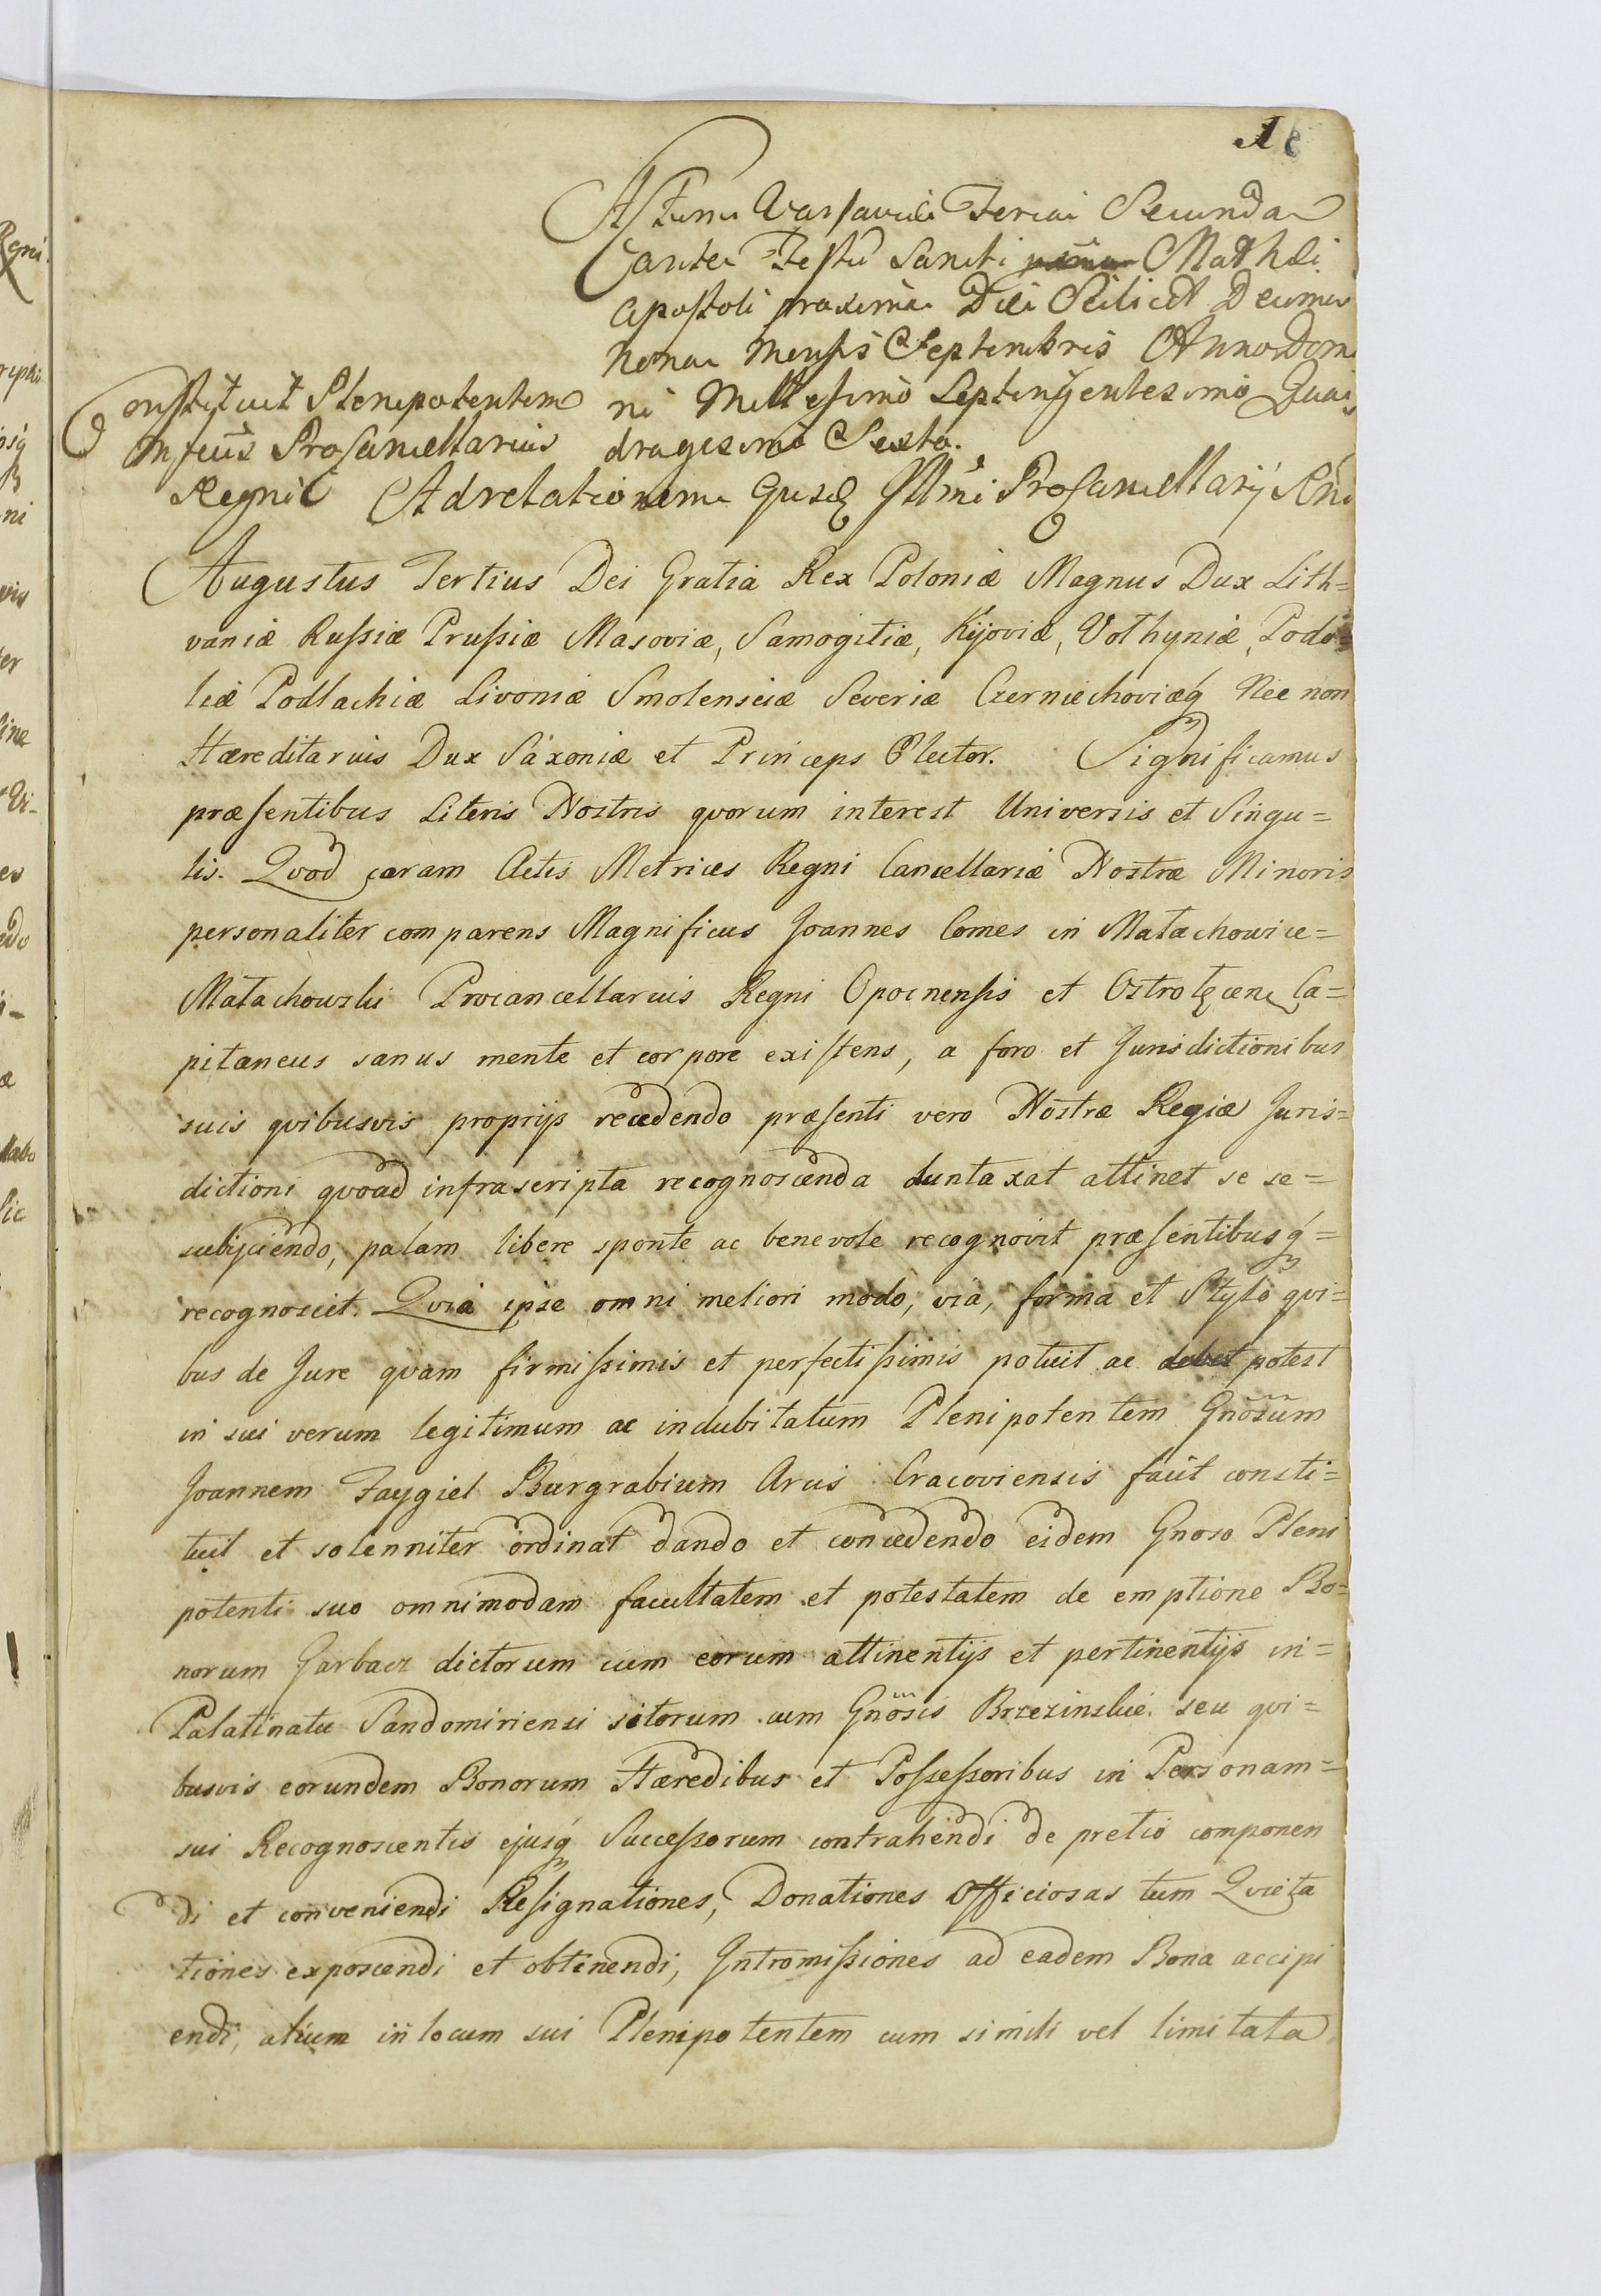 Actum Varsaviæ Feria Secunda
ante Festũ Sancti Mathæi
Apostoli proxima Die Scilicet Decima
Nona Mensis Septembris Anno Domi
ni Millesimo Septingentesimo Qua
dragesimo Sexto.
Constituit Plenipotentem
Mfcus ProCancellarius
Regni
Ad relationem Ejusdẽ Illmi ProCancellarij Rni
Augustus Tertius Dei Gratia Rex Poloniæ Magnus Dux Lith=
vaniæ Russiæ Prussiæ Masoviæ, Samogitiæ, Kijoviæ, Volhyniæ, Podo=
liæ Podlachiæ Livoniæ Smolensciæ Severiæ Czerniechoviæq́ Nec non
Hæreditarius Dux Saxoniæ et Princeps Elector. Significamus
præsentibus Literis Nostris qvorum interest Universis et Singu=
lis. Qvod coram Actis Metrices Regni Cancellariæ Nostræ Minoris
personaliter comparens Magnificus Joannes Comes in Małachowice=
Małachowski Procancellarius Regni Opocnensis et Ostrołęcen Ca=
pitaneus sanus mente et corpore existens, a foro et Jurisdictionibus
suis qvibusvis proprijs recedendo præsenti vero Nostræ Regiæ Juris=
dictioni qvoad infrascripta recognoscenda duntaxat attinet se se=
subijciendo, palam libere sponte ac benevole recognovit præsentibusq́=
recognoscit. Qvia ipse omni meliori modò, viâ, formâ et Stylò qvi=
bus de Jure qvam firmissimis et perfectissimis potuit ac debet potest
in sui verum legitimum ac indubitatum Plenipotentem Gñosũm
Joannem Faygiel Burgrabium Arcis Cracoviensis facit consti=
tuit et solenniter ordinat dando et concedendo eidem Gnoso Pleni
potenti suo omnimodam facultatem et potestatem de emptione Bo=
norum Garbacz dictorum cum eorum attinentijs et pertinentijs in=
Palatinatu Sandomiriensi sitorum cum Gñosis Brzezinskie seu qvi=
busvis eorundem Bonorum Hæredibus et Possessoribus in Personam=
sui Recognoscentis ejusq́ Successorum contrahendi de pretio componen
di et conveniendi Resignationes, Donationes Officiosas tum Qvieta
tiones exposcendi et obtinendi, Intromissiones ad eadem Bona accipi
endi, alium in locum sui Plenipotentem cum simili vel limitata